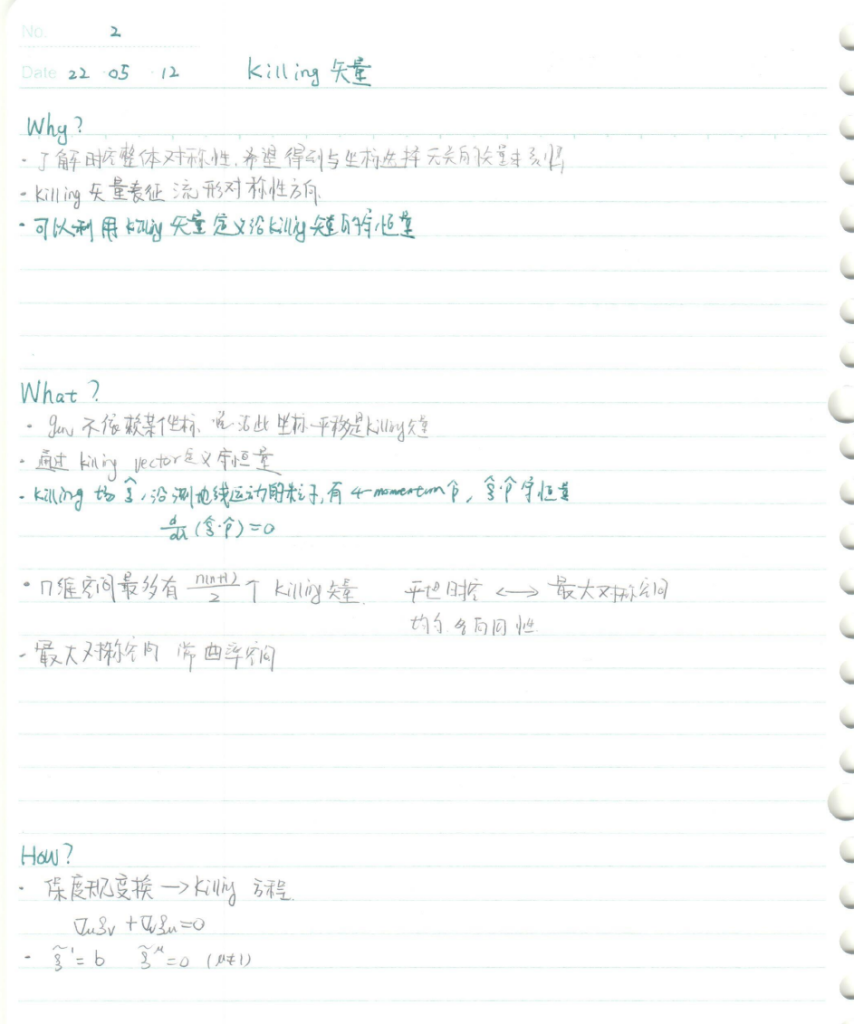 No. 2
Date 22 · 05 · 12 Killing 矢量
Why?
· 了解时空整体对称性,希望得到与坐标选择无关的矢量来刻画
· Killing 矢量表征流形对称性方向
· 可以利用 Killing 矢量定义沿Killing矢量的守恒量
What?
· gμν 不依赖某个坐标, 沿此坐标平移是Killing矢量
· 通过 killing vector定义守恒量
· Killing 场 ξ̂, 沿测地线运动的粒子,有 4-momentum p̂, ξ̂·p̂ 守恒量
d/dλ (ξ̂·p̂)=0
· n维空间最多有 n(n+1)/2 个 Killing矢量 平坦时空 ↔ 最大对称空间
均匀 各向同性
· 最大对称空间 常曲率空间
How?
· 保度规变换 → Killing 方程
∇μξν + ∇νξμ = 0
· ξ̃¹ = b ξ̃^μ = 0 (μ≠1)